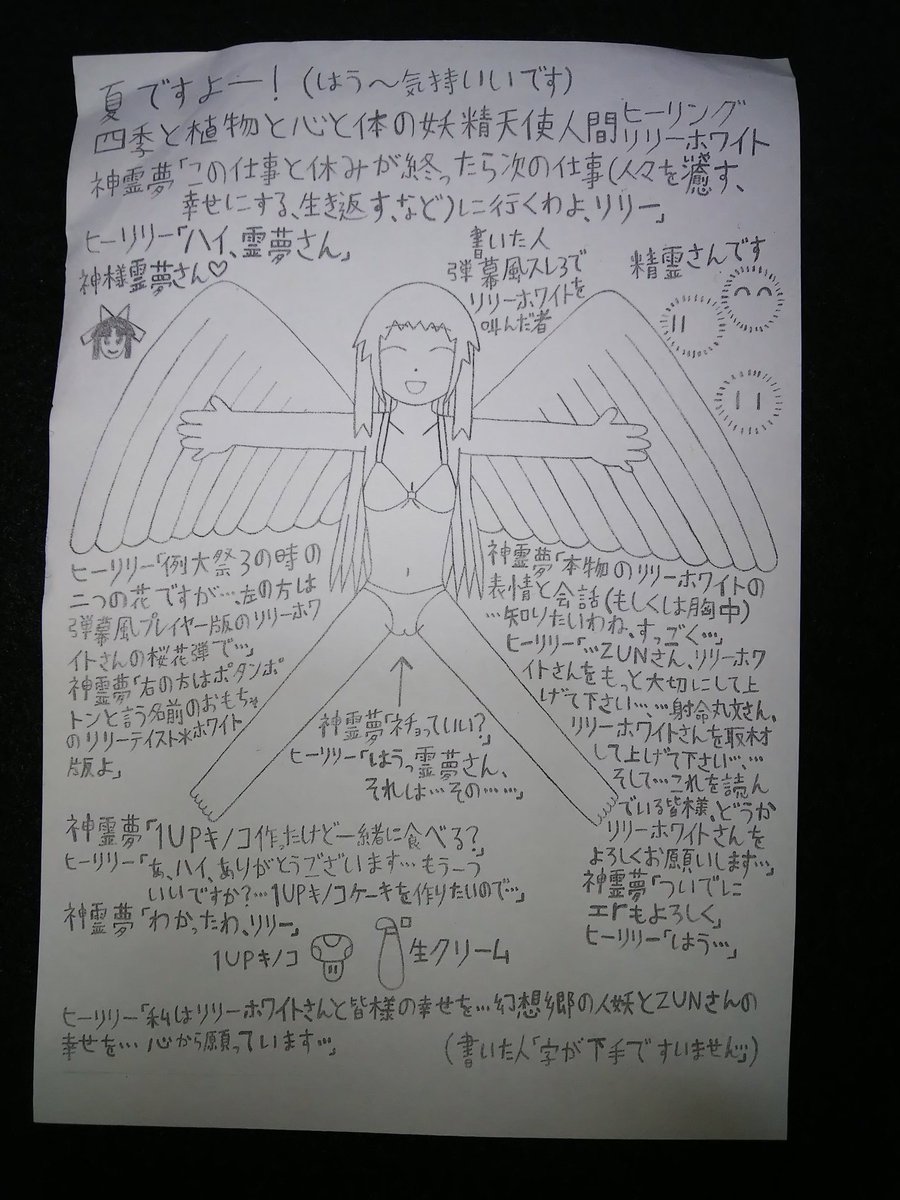 夏ですよー！(はう〜気持いいです)
四季と植物と心と体の妖精天使人間ヒーリング
リリーホワイト
神霊夢「この仕事と休みが終ったら次の仕事(人々を癒す、
幸せにする、生き返す、など)に行くわよ、リリー」
ヒーリリー「ハイ、霊夢さん」
神様霊夢さん♡
書いた人
弾幕風スレ3で
リリーホワイトを
叫んだ者
精霊さんです
ヒーリリー「例大祭3の時の
二つの花ですが…、左の方は
弾幕風プレイヤー版のリリーホワ
イトさんの桜花弾で…」
神霊夢「右の方はポタンポ
トンと言う名前のおもちゃ
のリリーテイスト*ホワイト
版よ」
神霊夢「本物のリリーホワイトの
表情と会話(もしくは胸中)
…知りたいわね、すっごく…」
ヒーリリー「…ZUNさん、リリーホワ
イトさんをもっと大切にして上
げて下さい……射命丸文さん、
リリーホワイトさんを取材
して上げて下さい……
そして…これを読ん
でいる皆様、どうか
リリーホワイトさんを
よろしくお願いします…」
神霊夢「ついでに
エrもよろしく」
ヒーリリー「はう…」
神霊夢「ネチョっていい？」
ヒーリリー「はうっ霊夢さん、
それは…その……」
神霊夢「1UPキノコ作ったけど一緒に食べる？」
ヒーリリー「あ、ハイ、ありがとうございます…もう一つ
いいですか？…1UPキノコケーキを作りたいので…」
神霊夢「わかったわ、リリー」
1UPキノコ
生クリーム
ヒーリリー「私はリリーホワイトさんと皆様の幸せを…幻想郷の人妖とZUNさんの
幸せを…心から願っています…」
(書いた人「字が下手ですいません」)